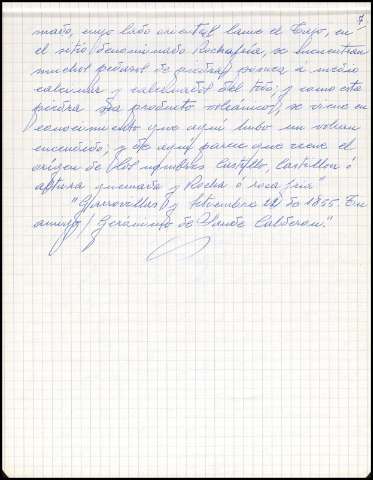 7
mado, cuyo lado oriental lame el Tajo, en
el sitio denominado Rochafría, se encuentran
muchos pedazos de piedra pómez á medio
calcinar y calcinados del todo; y como esta
piedra sea producto volcánico, se viene en
conocimiento que aqui hubo un volcan
encendido; y de aqui parece que viene el
origen de los nombres Castillo, Castillon ó
altura quemada y Rocha ó roca fria"
"Garrovillas y Setiembre 12 de 1855. Tu
amigo/ Gerónimo de Sande Calderon."